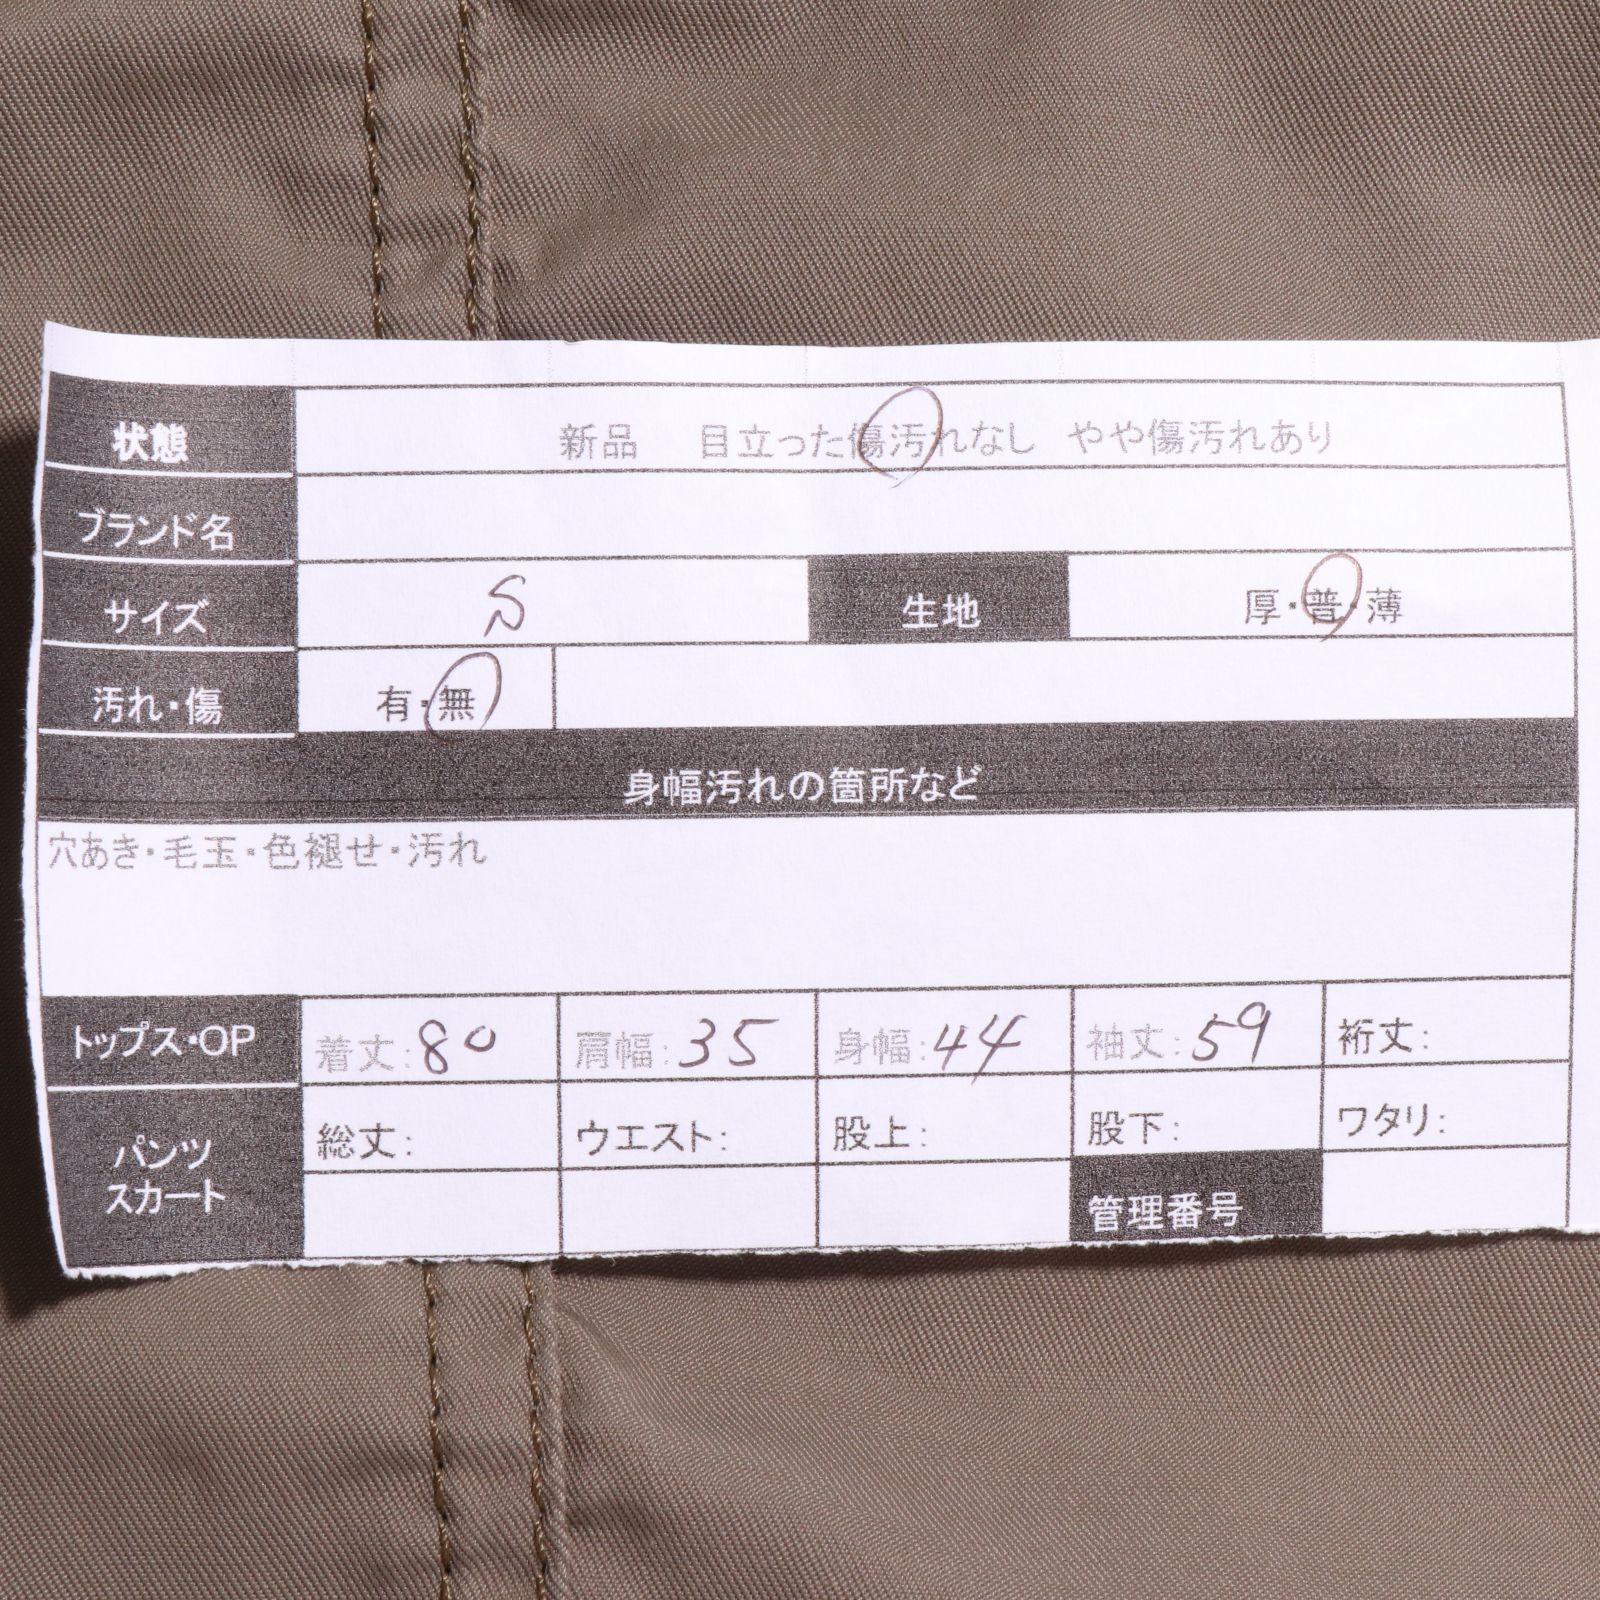 状態 新品 目立った傷汚れなし やや傷汚れあり
ブランド名
サイズ S 生地 厚・普・薄
汚れ・傷 有・無
身幅汚れの箇所など
穴あき・毛玉・色褪せ・汚れ
トップス・OP 着丈:80 肩幅:35 身幅:44 袖丈:59 裄丈:
パンツ
スカート
総丈: ウエスト: 股上: 股下: ワタリ:
管理番号